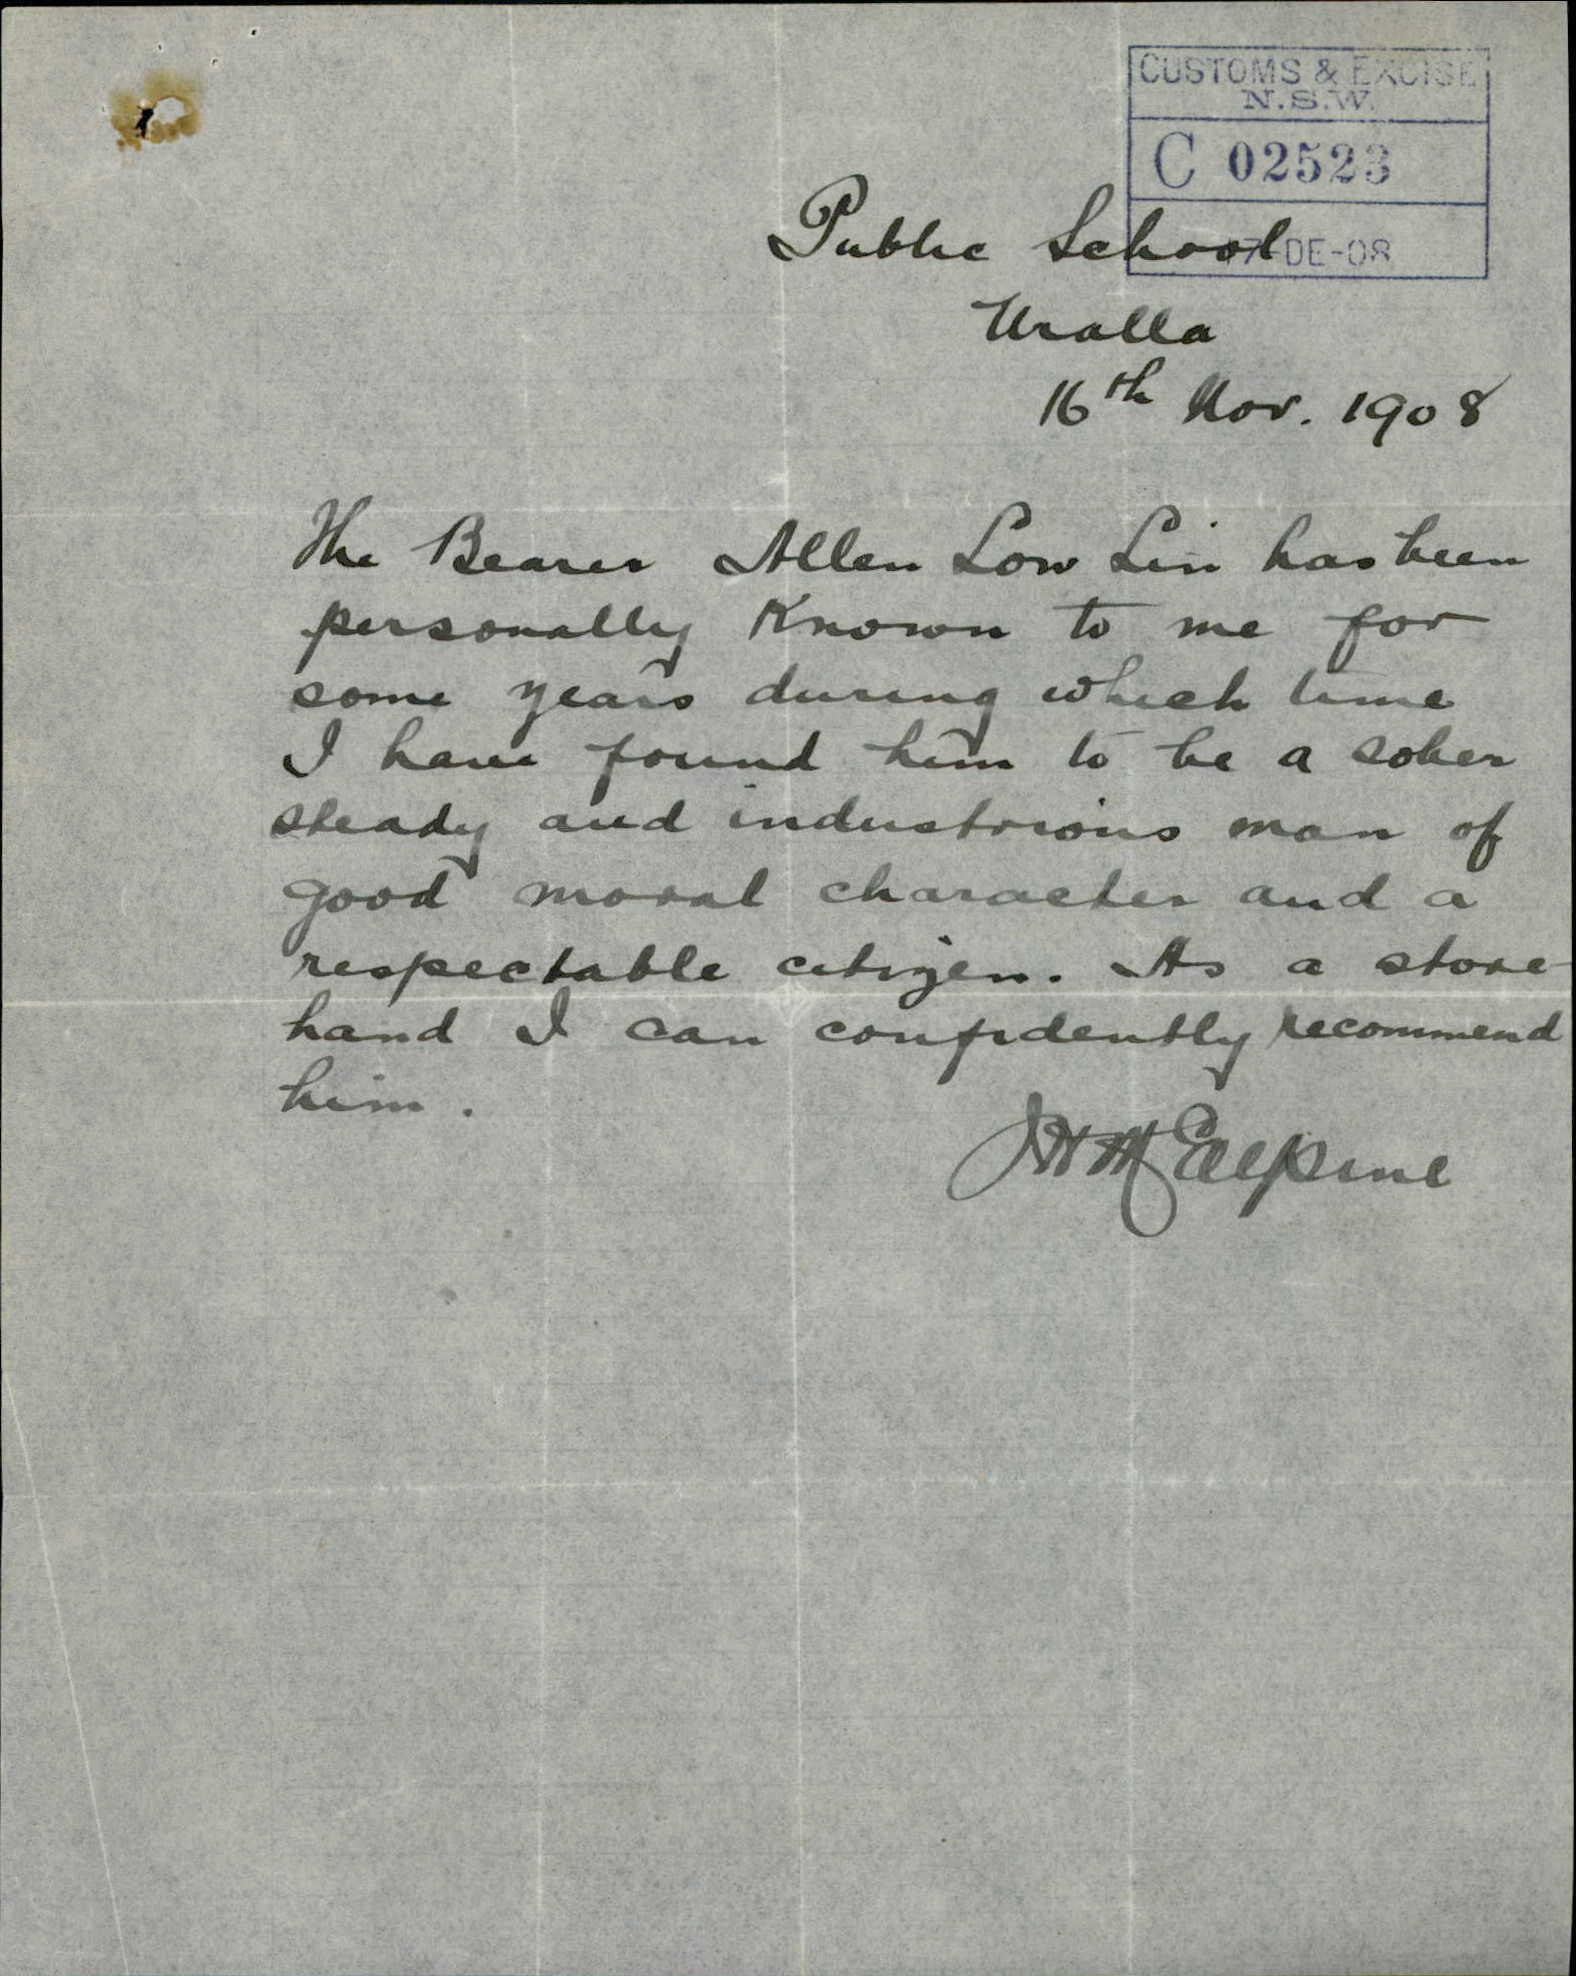 CUSTOMS & EXCISE
N.S.W.
C 02523
17-DE-08
Public School
Uralla
16th Nov. 1908
The Bearer Allen Low Lin has been
personally Known to me for
some years during which time
I have found him to be a sober
steady and industrious man of
good moral character and a
respectable citizen. As a store
hand I can confidently recommend
him.